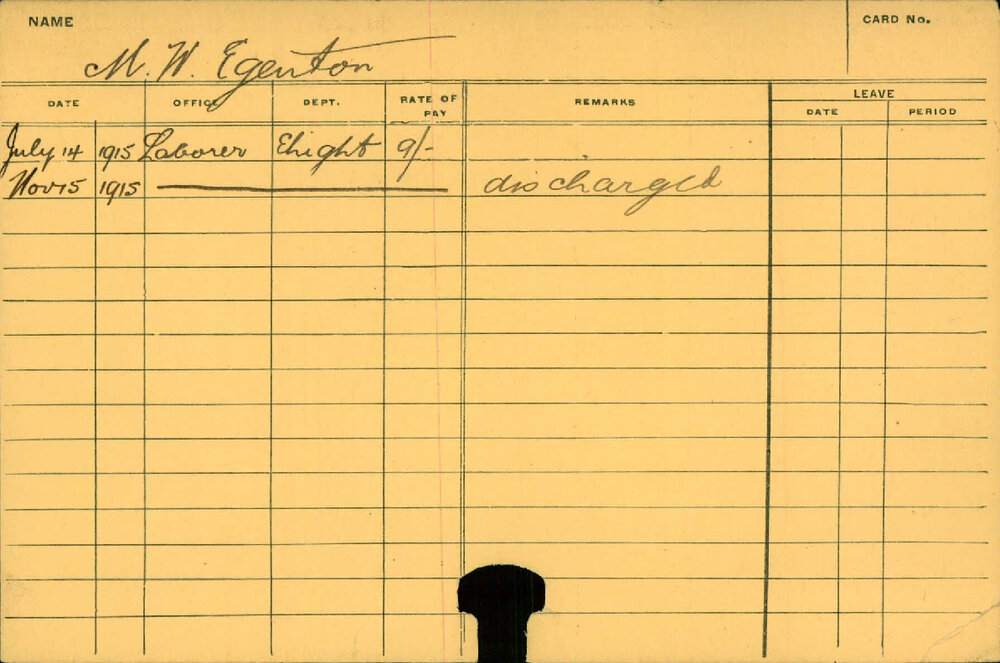 NAME
CARD No.
M. W. Egenton
DATE OFFICE DEPT. RATE OF PAY REMARKS LEAVE
DATE PERIOD
July 14 1915 Laborer Elight 9/-
Nov 15 1915 discharged